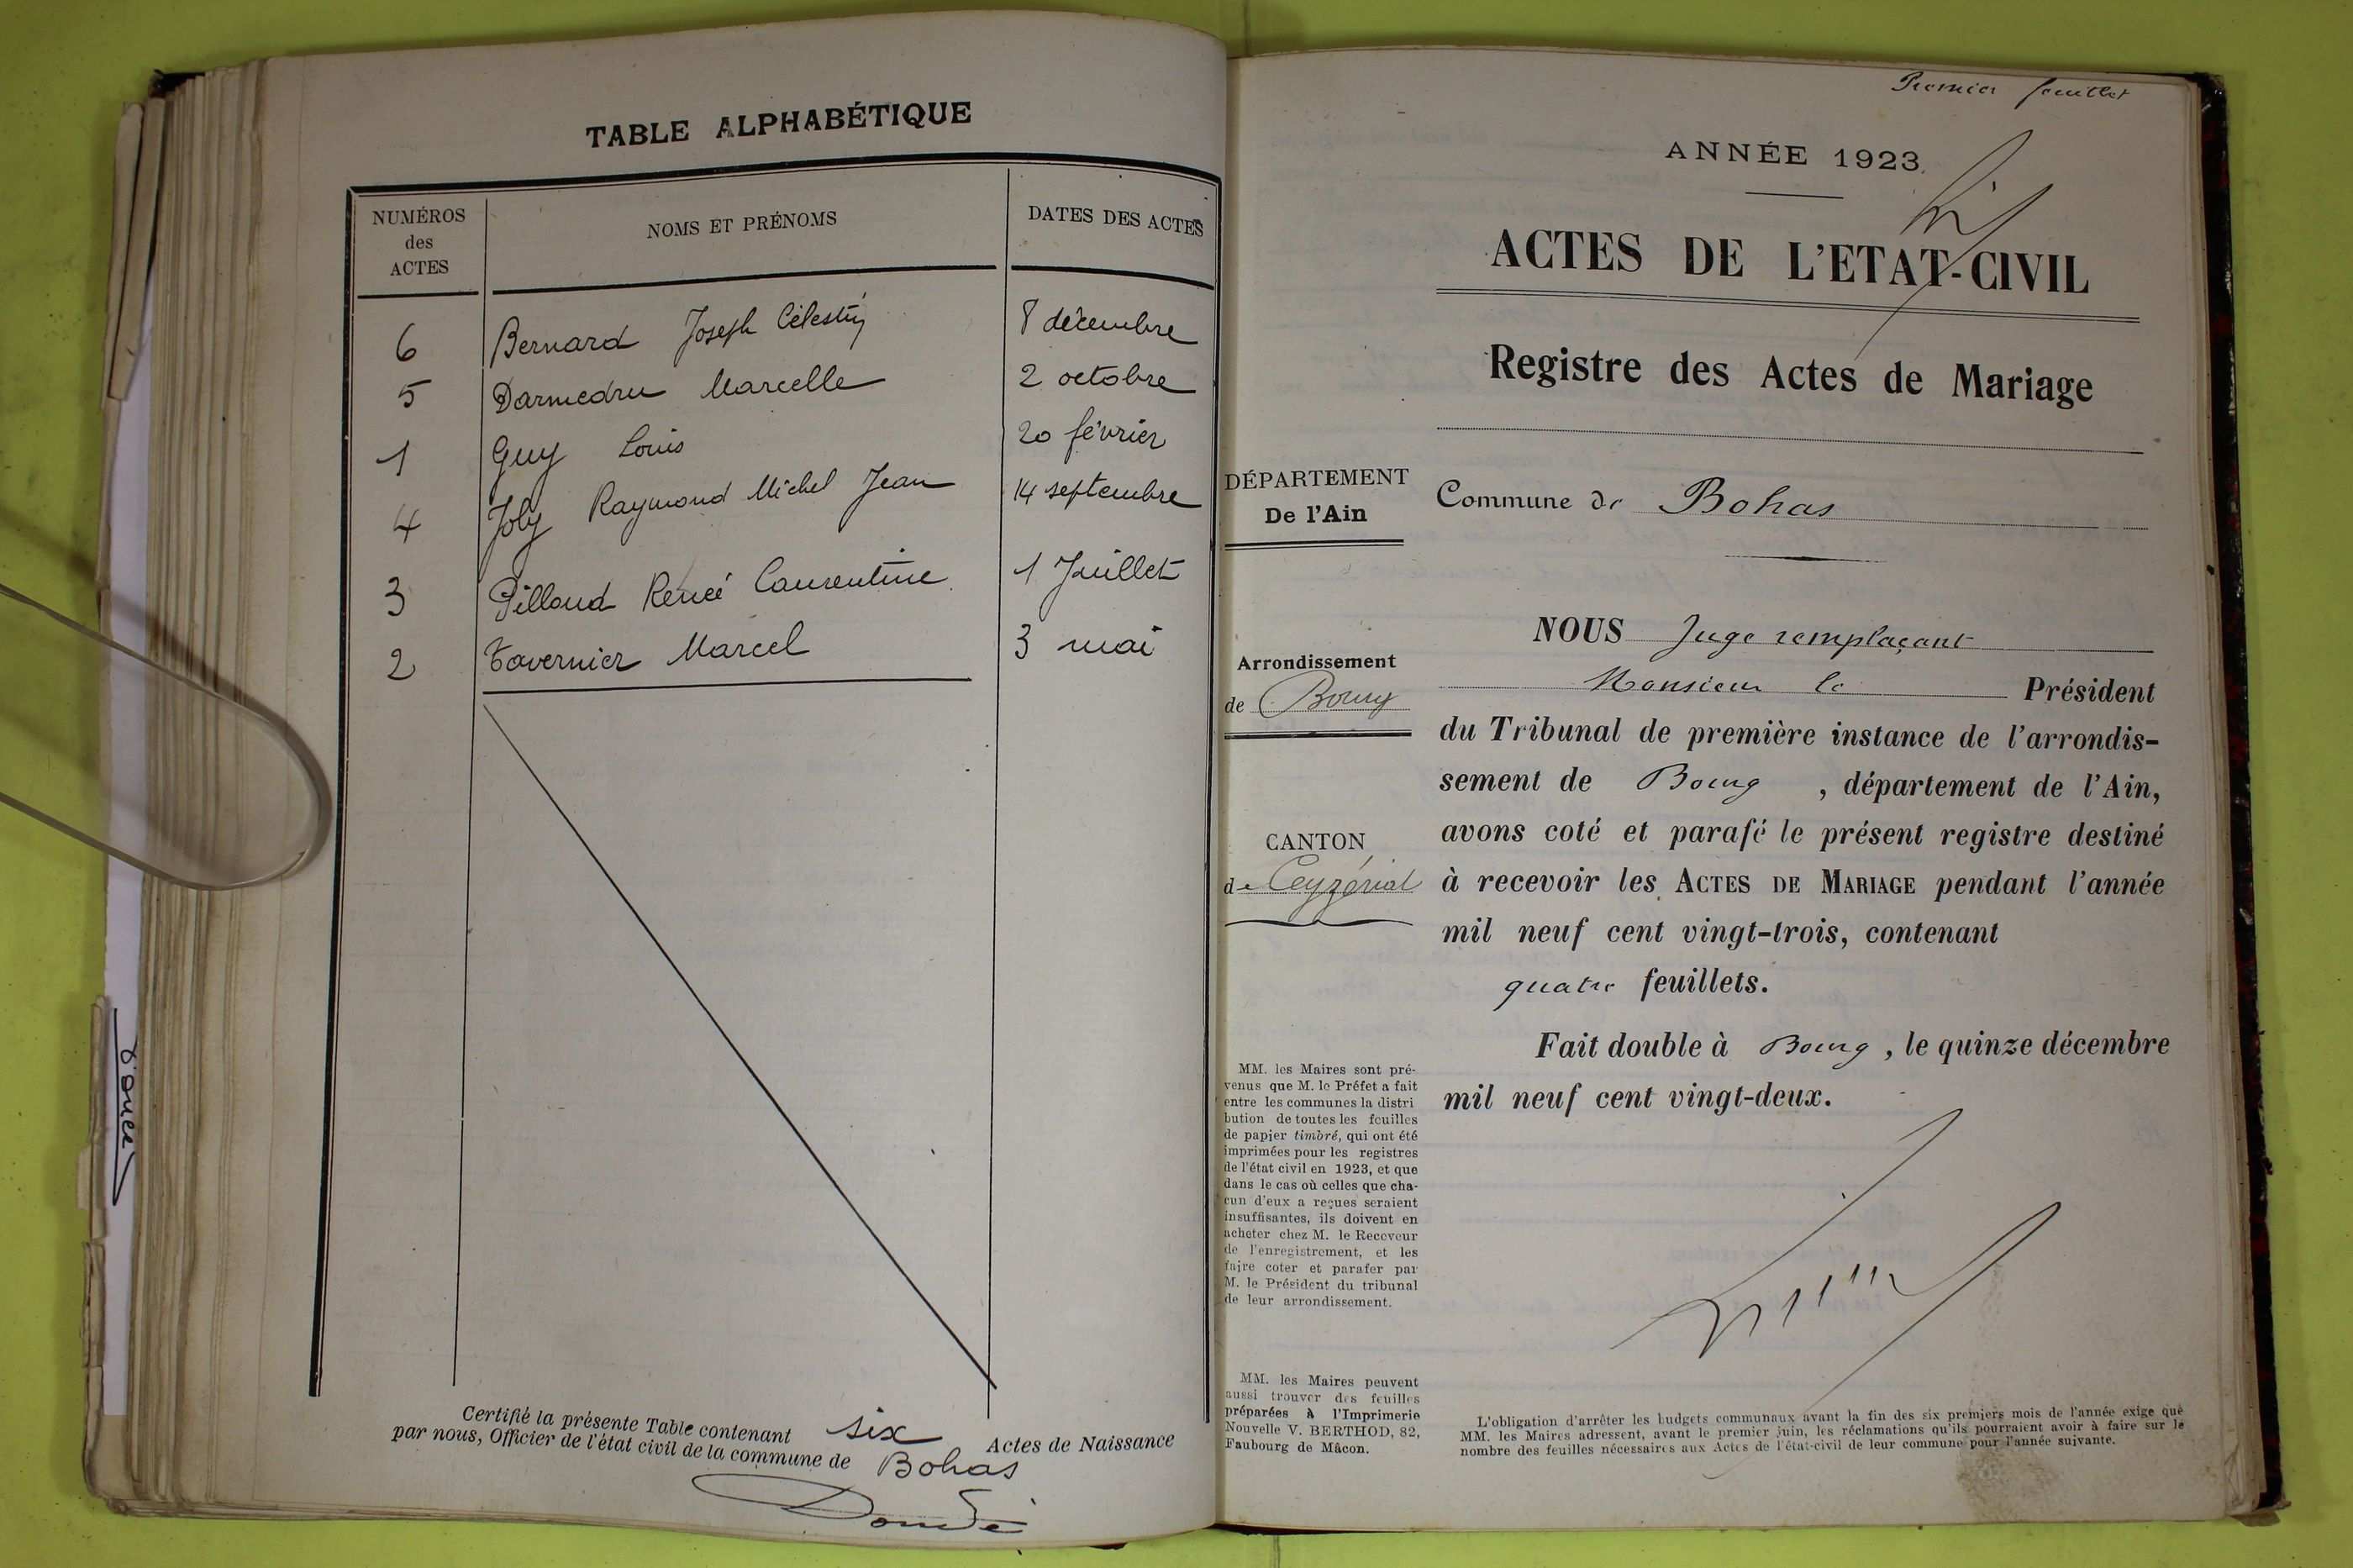 TABLE ALPHABÉTIQUE
NUMÉROS
des
ACTES
NOMS ET PRÉNOMS
DATES DES ACTES
6 Bernard Joseph Célestin 8 décembre
5 Darmedru Marcelle 2 octobre
1 Guy Louis 20 février
4 Joly Raymond Michel Jean 14 septembre
3 Pilloud Renée Laurentine 1 Juillet
2 Tavernier Marcel 3 mai
Certifié la présente Table contenant six Actes de Naissance
par nous, Officier de l'état civil de la commune de Bohas
Premier feuillet
ANNÉE 1923
ACTES DE L'ETAT-CIVIL
Registre des Actes de Mariage
DÉPARTEMENT
De l'Ain
Commune de Bohas
Arrondissement
de Bourg
CANTON
de Ceyzériat
NOUS Juge remplaçant
Monsieur le Président
du Tribunal de première instance de l'arrondis-
sement de Bourg , département de l'Ain,
avons coté et parafé le présent registre destiné
à recevoir les ACTES DE MARIAGE pendant l'année
mil neuf cent vingt-trois, contenant
quatre feuillets.
Fait double à Bourg , le quinze décembre
mil neuf cent vingt-deux.
MM. les Maires sont pré-
venus que M. le Préfet a fait
entre les communes la distri
bution de toutes les feuilles
de papier timbré, qui ont été
imprimées pour les registres
de l'état civil en 1923, et que
dans le cas où celles que cha-
cun d'eux a reçues seraient
insuffisantes, ils doivent en
acheter chez M. le Receveur
de l'enregistrement, et les
faire coter et parafer par
M. le Président du tribunal
de leur arrondissement.
MM. les Maires peuvent
aussi trouver des feuilles
préparées à l'Imprimerie
Nouvelle V. BERTHOD, 82,
Faubourg de Mâcon.
L'obligation d'arrêter les budgets communaux avant la fin des six premiers mois de l'année exige que
MM. les Maires adressent, avant le premier juin, les réclamations qu'ils pourraient avoir à faire sur le
nombre des feuilles nécessaires aux Actes de l'état-civil de leur commune pour l'année suivante.